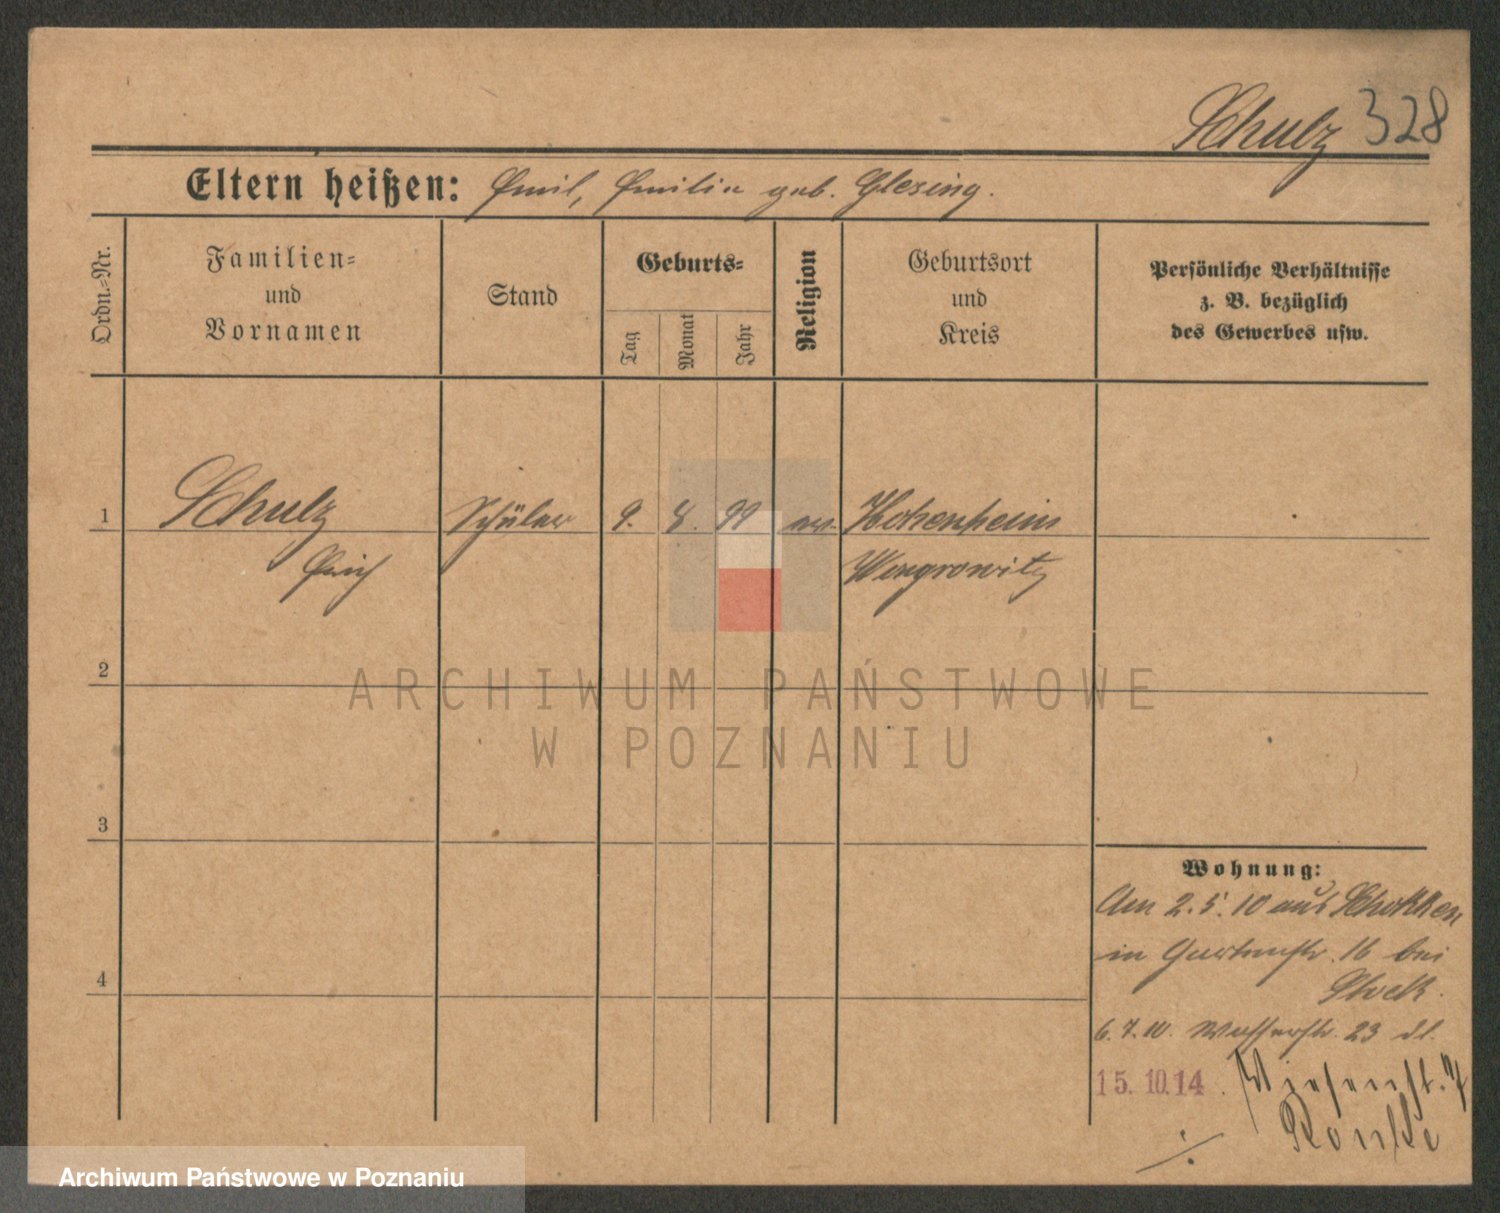 Schulz 328
Eltern heißen: Emil, Emilie geb. Glesing.
Ordn.-Nr.
Familien-
und
Vornamen
Stand
Geburts-
Tag
Monat
Jahr
Religion
Geburtsort
und
Kreis
Persönliche Verhältnisse
z. B. bezüglich
des Gewerbes usw.
1 Schulz Schüler 9. 8. 99 ev. Hohenheim
Erich Wongrowitz
2
3
4
Wohnung:
Am 2.5.10 aus Schokken
in Gartenstr. 16 bei
6.7.10. Wasserstr. 23 dl.
15.10.14. Wiesenst. 7
ARCHIWUM PAŃSTWOWE
W POZNANIU
Archiwum Państwowe w Poznaniu